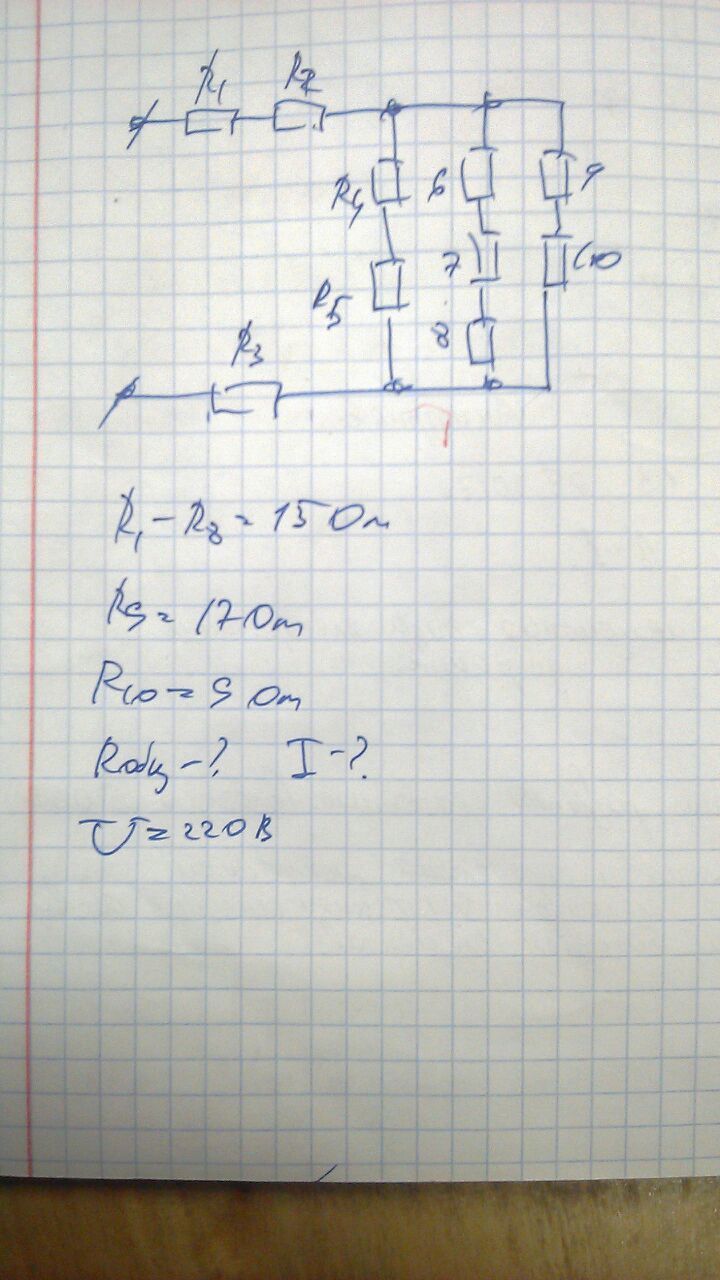 R1 R2
R4 6 9
R5 7 10
8
R3
R1 – R8 = 15 Ом
R9 = 17 Ом
R10 = 9 Ом
Rобщ – ? I – ?
U = 220 В